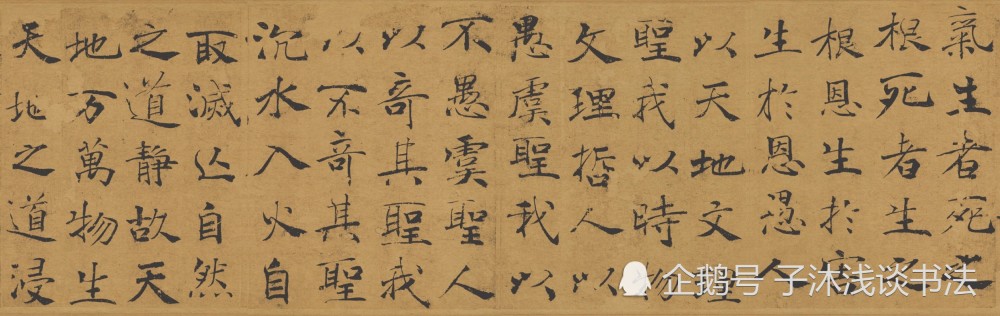 氣生者死之
根死者生之
根恩生於害
生於恩愚人
以天地文理
聖我以時物
文理哲人以
愚虞聖我以
不愚虞聖人
以奇其聖我
以不奇其聖
沉水入火自
取滅亡自然
之道靜故天
地万萬物生
天地之道浸
企鹅号 子沐浅谈书法